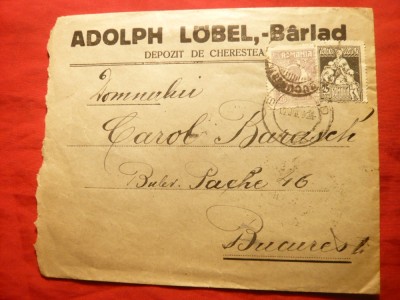 ADOLPH LÖBEL,-Bârlad
DEPOZIT DE CHERESTEA
Domnului
Carol Barasch
Bulev. Pache 46
București